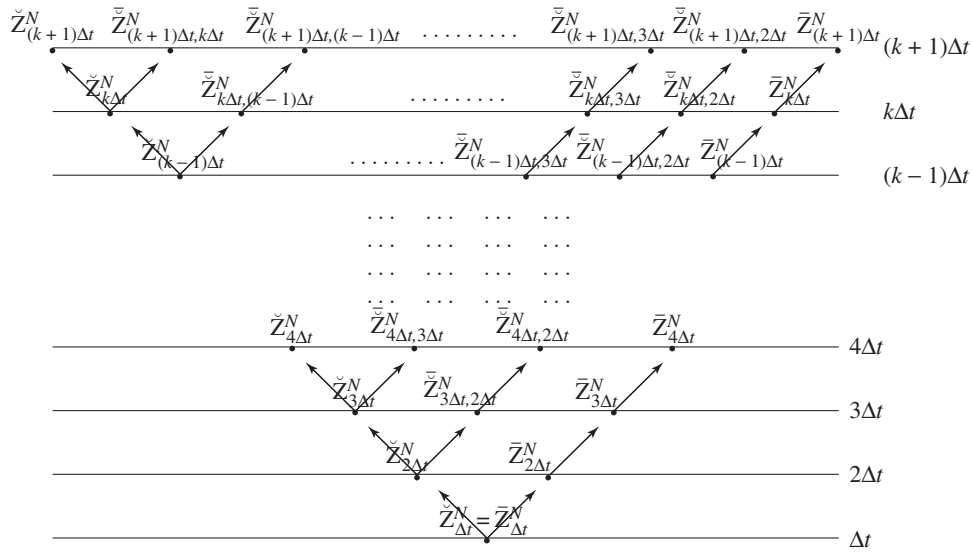 Z̆^N_{(k+1)Δt} Z̆̄^N_{(k+1)Δt,kΔt} Z̆̄^N_{(k+1)Δt,(k−1)Δt} ......... Z̆̄^N_{(k+1)Δt,3Δt} Z̆̄^N_{(k+1)Δt,2Δt} Z̄^N_{(k+1)Δt} (k+1)Δt
Z̆^N_{kΔt} Z̆̄^N_{kΔt,(k−1)Δt} ......... Z̆̄^N_{kΔt,3Δt} Z̆̄^N_{kΔt,2Δt} Z̄^N_{kΔt} kΔt
Z̆^N_{(k−1)Δt} ......... Z̆̄^N_{(k−1)Δt,3Δt} Z̆̄^N_{(k−1)Δt,2Δt} Z̄^N_{(k−1)Δt} (k−1)Δt
... ... ... ...
... ... ... ...
... ... ... ...
... ... ... ...
Z̆^N_{4Δt} Z̆̄^N_{4Δt,3Δt} Z̆̄^N_{4Δt,2Δt} Z̄^N_{4Δt} 4Δt
Z̆^N_{3Δt} Z̆̄^N_{3Δt,2Δt} Z̄^N_{3Δt} 3Δt
Z̆^N_{2Δt} Z̄^N_{2Δt} 2Δt
Z̆^N_{Δt} = Z̄^N_{Δt} Δt